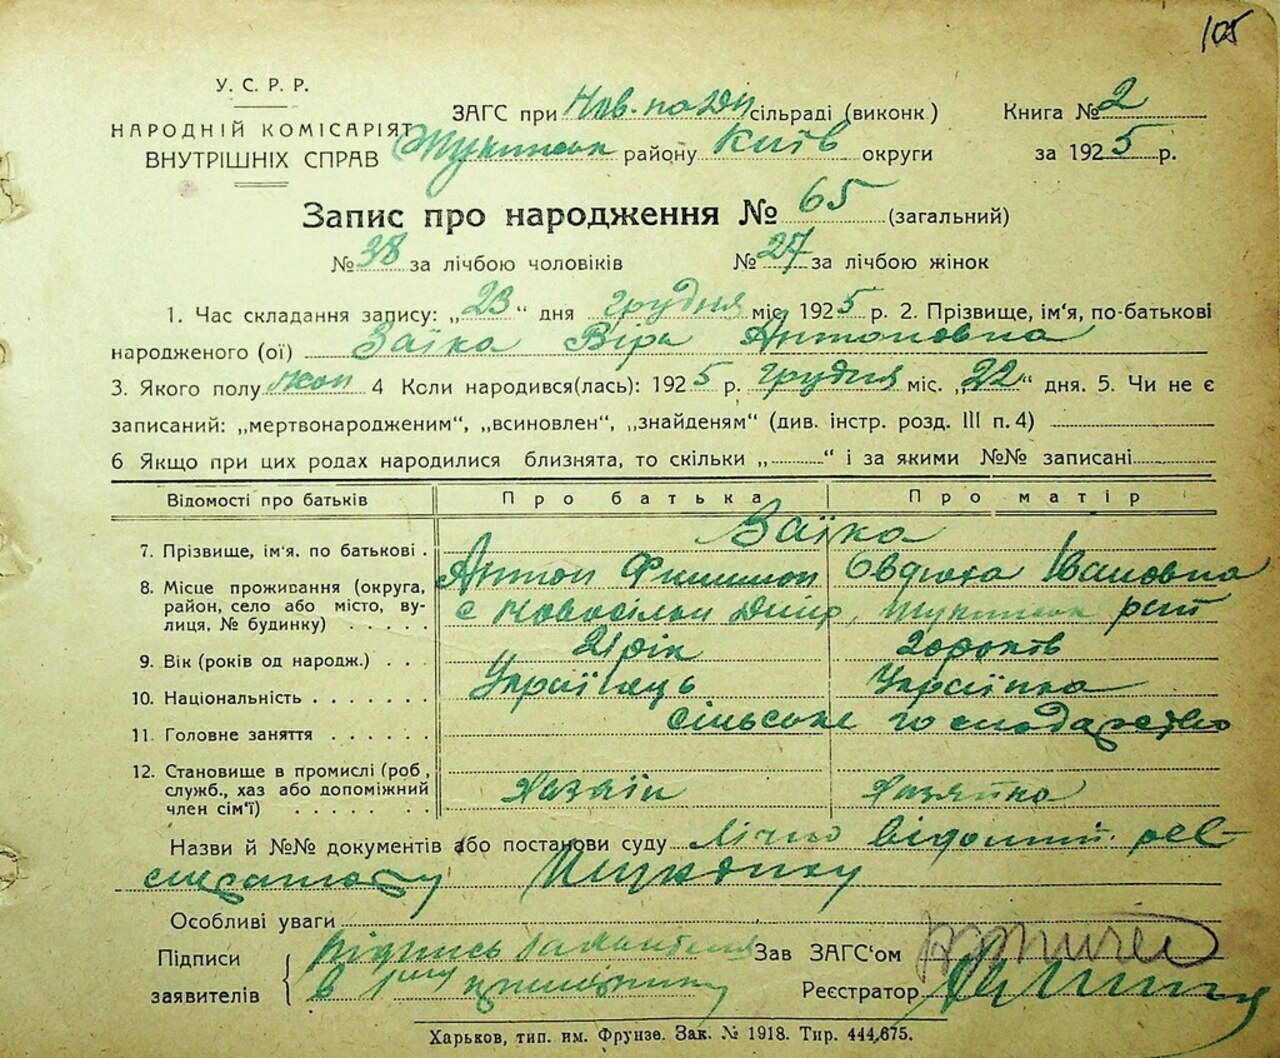 105
У. С. Р. Р.
НАРОДНІЙ КОМІСАРІЯТ
ВНУТРІШНІХ СПРАВ
ЗАГС при сільраді (виконк)
районУ Київ округи
Книга № 2
за 1925 р.
Запис про народження № 65 (загальний)
№ 38 за лічбою чоловіків № 27 за лічбою жінок
1. Час складання запису: „23“ дня грудня міс. 1925 р. 2. Прізвище, ім'я, по-батькові
народженого (ої) Заїка Віра Антоновна
3. Якого полу жон 4 Коли народився(лась): 1925 р. грудня міс. „22“ дня. 5. Чи не є
записаний: „мертвонародженим“, „всиновлен“, „знайденям“ (див. інстр. розд. III п. 4)
6 Якщо при цих родах народилися близнята, то скільки „ “ і за якими №№ записані
Відомості про батьків Про батька Про матір
Заїка
7. Прізвище, ім'я. по батькові . Антон Филимон Овдюта Івановна
8. Місце проживання (округа,
район, село або місто, вулиця, № будинку) с Новосілки Дніпр,
9. Вік (років од народж.) . . . 21 рік 20 років
10. Національність . . . . . . . Українець Українка
11. Головне заняття . . . . . . сільське господарство
12. Становище в промислі (роб,
служб., хаз або допоміжний
член сім'ї) . . . . . . Хазаїн Хазяйка
Назви й №№ документів або постанови суду лічно відомий
Особливі уваги
Підписи
заявителів
підпись заявителя
в
Зав ЗАГС'ом
Реєстратор
Харьков, тип. им. Фрунзе. Зак. № 1918. Тир. 444,675.